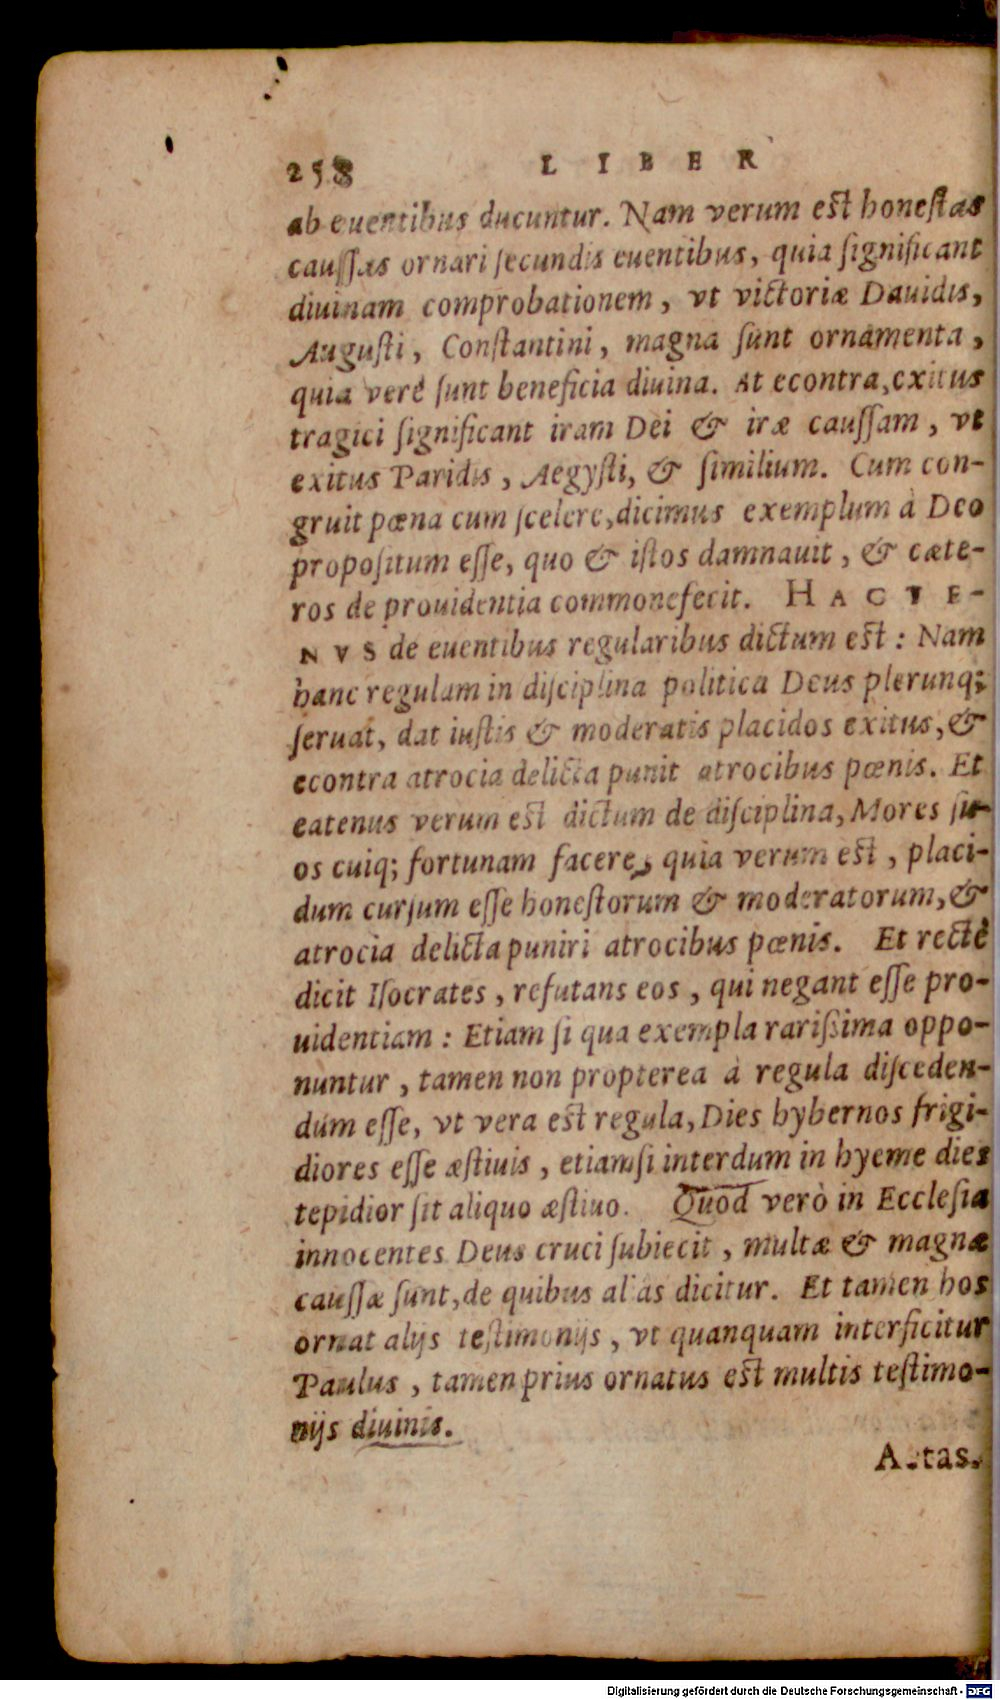 258 LIBER
ab euentibus ducuntur. Nam verum est honestas
caussas ornari secundis euentibus, quia significant
diuinam comprobationem, vt victoriæ Dauidis,
Augusti, Constantini, magna sunt ornamenta,
quia verè sunt beneficia diuina. At econtra, exitus
tragici significant iram Dei & iræ caussam, vt
exitus Paridis, Aegysti, & similium. Cum con-
gruit pœna cum scelere, dicimus exemplum à Deo
propositum esse, quo & istos damnauit, & cæte-
ros de prouidentia commonefecit. HACTE-
NVS de euentibus regularibus dictum est: Nam
hanc regulam in disciplina politica Deus plerunq;
seruat, dat iustis & moderatis placidos exitus, &
econtra atrocia delicta punit atrocibus pœnis. Et
eatenus verum est dictum de disciplina, Mores su-
os cuiq; fortunam facere, quia verum est, placi-
dum cursum esse honestorum & moderatorum, &
atrocia delicta puniri atrocibus pœnis. Et rectè
dicit Isocrates, refutans eos, qui negant esse pro-
uidentiam: Etiam si qua exempla rarißima oppo-
nuntur, tamen non propterea à regula disceden-
dum esse, vt vera est regula, Dies hybernos frigi-
diores esse æstiuis, etiamsi interdum in hyeme dies
tepidior sit aliquo æstiuo. Quod verò in Ecclesia
innocentes Deus cruci subiecit, multæ & magnæ
caussæ sunt, de quibus alias dicitur. Et tamen hos
ornat alijs testimonijs, vt quanquam interficitur
Paulus, tamen prius ornatus est multis testimo-
nijs diuinis.
Aetas.
Digitalisierung gefördert durch die Deutsche Forschungsgemeinschaft - DFG